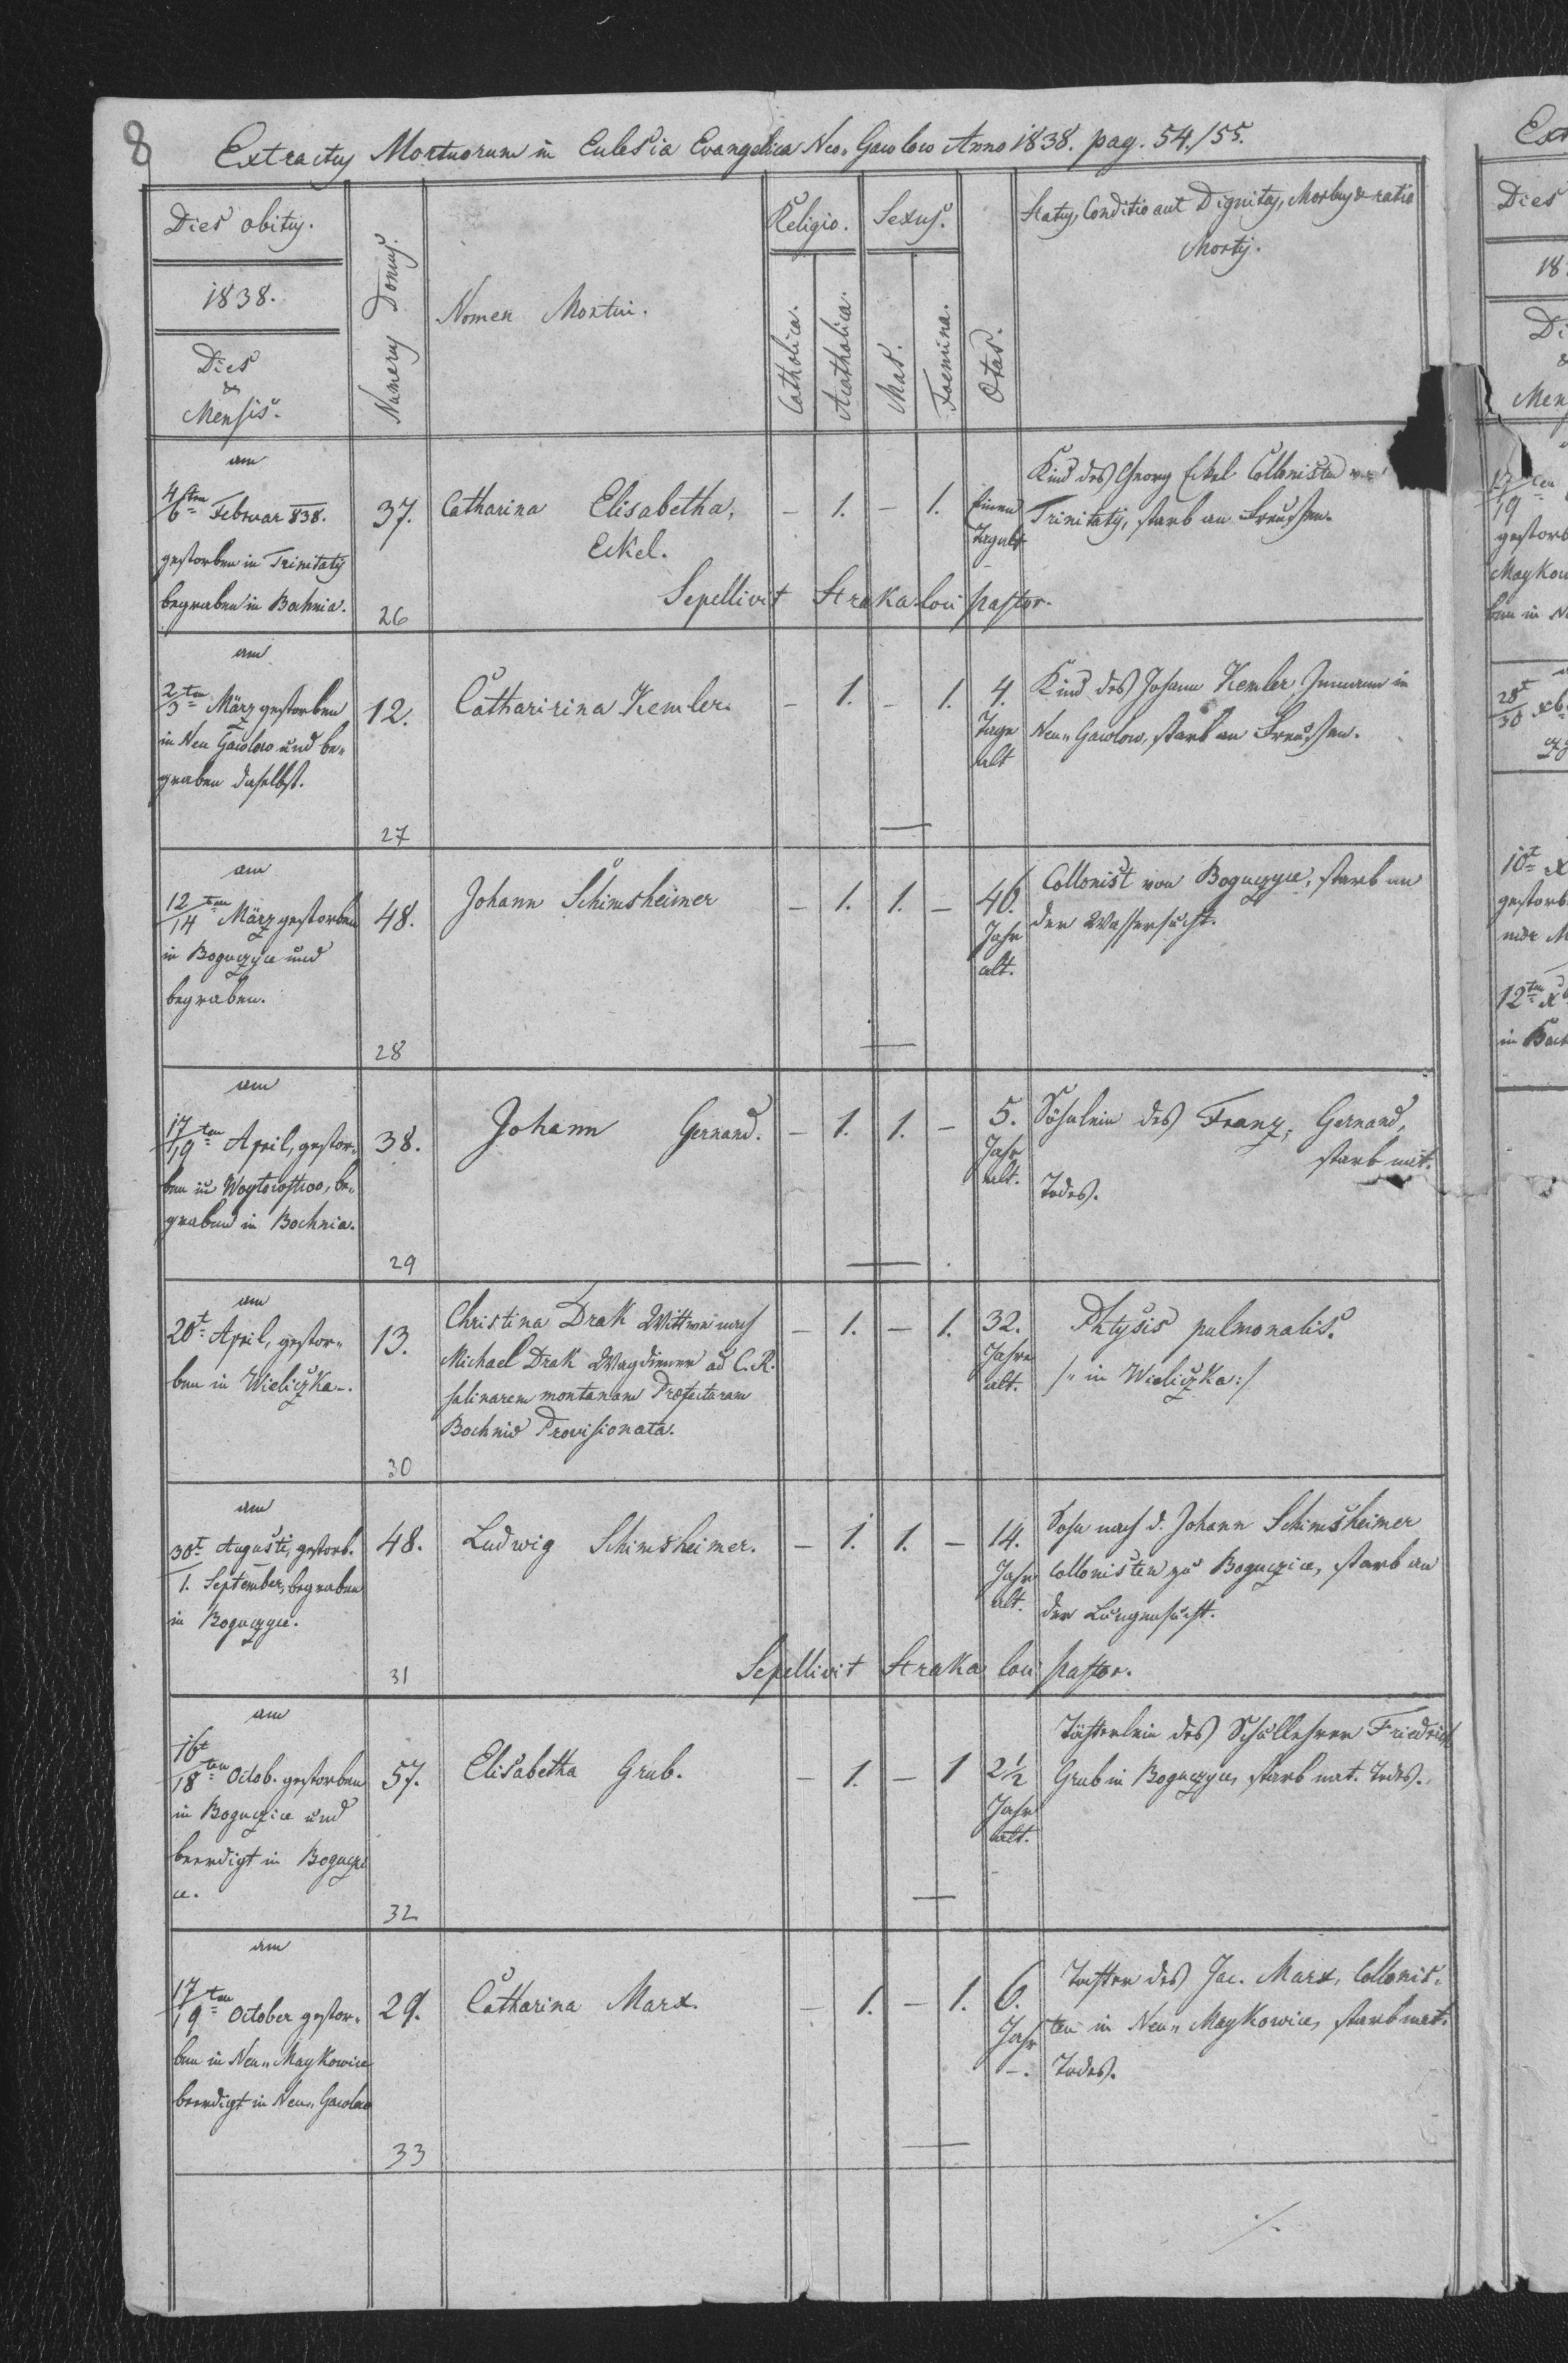 8
Extractus Mortuorum in Eclesia Evangelica Neo-Gawlow Anno 1838. pag. 54./55.
Dies obitus.
1838.
Dies
&
Mensis.
Numerus Domus.
Nomen Mortui.
Religio.
Catholica.
Acatholica.
Sexus.
Mas.
Foemina.
Status, Conditio aut Dignitas, Morbus & ratio
Mortis.
am
4/6ten Februar 838.
gestorben in Trinitatis
begraben in Bochnia.
37.
26
Catharina Elisabetha,
Eckel.
- 1. - 1.
Einen
Tag alt
Kind des Georg Eckel Collonisten
Trinitatis, starb an Freußen.
Sepellivit Straka loci pastor.
am
2/3ten März gestorben
in Neu Gawlow und be-
graben daselbst.
12.
27
Catharirina Kemler.
- 1. - 1.
4.
Tage
alt
Kind des Johann Kemler Inmann in
Neu-Gawlow, starb an Freußen.
am
12/14ten März gestorben
in Boguczyce und
begraben.
48.
28
Johann Schimsheimer
- 1. 1. -
46.
Jahr
alt.
Collonist von Boguczyce, starb an
der Wassersucht.
am
17/19ten April, gestor-
ben in Woytowstwo, be-
graben in Bochnia.
38.
29
Johann Gernand.
- 1. 1. -
5.
Jahr
alt.
Söhnlein des Franz, Gernand,
starb nat.
Todes.
am
20t April, gestor-
ben in Wieliczka.
13.
30
Christina Drak Wittwe nach
Michael Drak Wagdiener ad C.R.
salinarem montanam Præfecturam
Bochniæ Provisionata.
- 1. - 1.
32.
Jahre
alt.
Phtysis pulmonalis.
/: in Wieliczka :/
am
30t Augusti, gestorb.
1. September, begraben
in Boguczyce.
48.
31
Ludwig Schimsheimer.
- 1. 1. -
14.
Jahr
alt.
Sohn nach d. Johann Schimsheimer
Collonisten zu Boguczice, starb an
der Lungensucht.
Sepellivit Straka loci pastor.
am
16t
18ten Octob. gestorben
in Boguczice und
beerdigt in Boguczi
ce.
57.
32
Elisabetha Grub.
- 1. - 1
2½
Jahr
alt.
Töchterlein des Schullehrer Friedrich
Grub in Boguczyce, starb nat. Todes.
am
17/19ten October gestor-
ben in Neu-Maykowice
beerdigt in Neu-Gawlow
29.
33
Catharina Marx.
- 1. - 1.
6.
Jahr
-.
Tochter des Jac. Marx, Collonis-
ten in Neu-Maykowice, starb nat.
Todes.
./.
Dies
18
Di
&
Men
gestorb
Maykow
ben in N
28t
30
10t X
gestorb
12ten X
in Boch